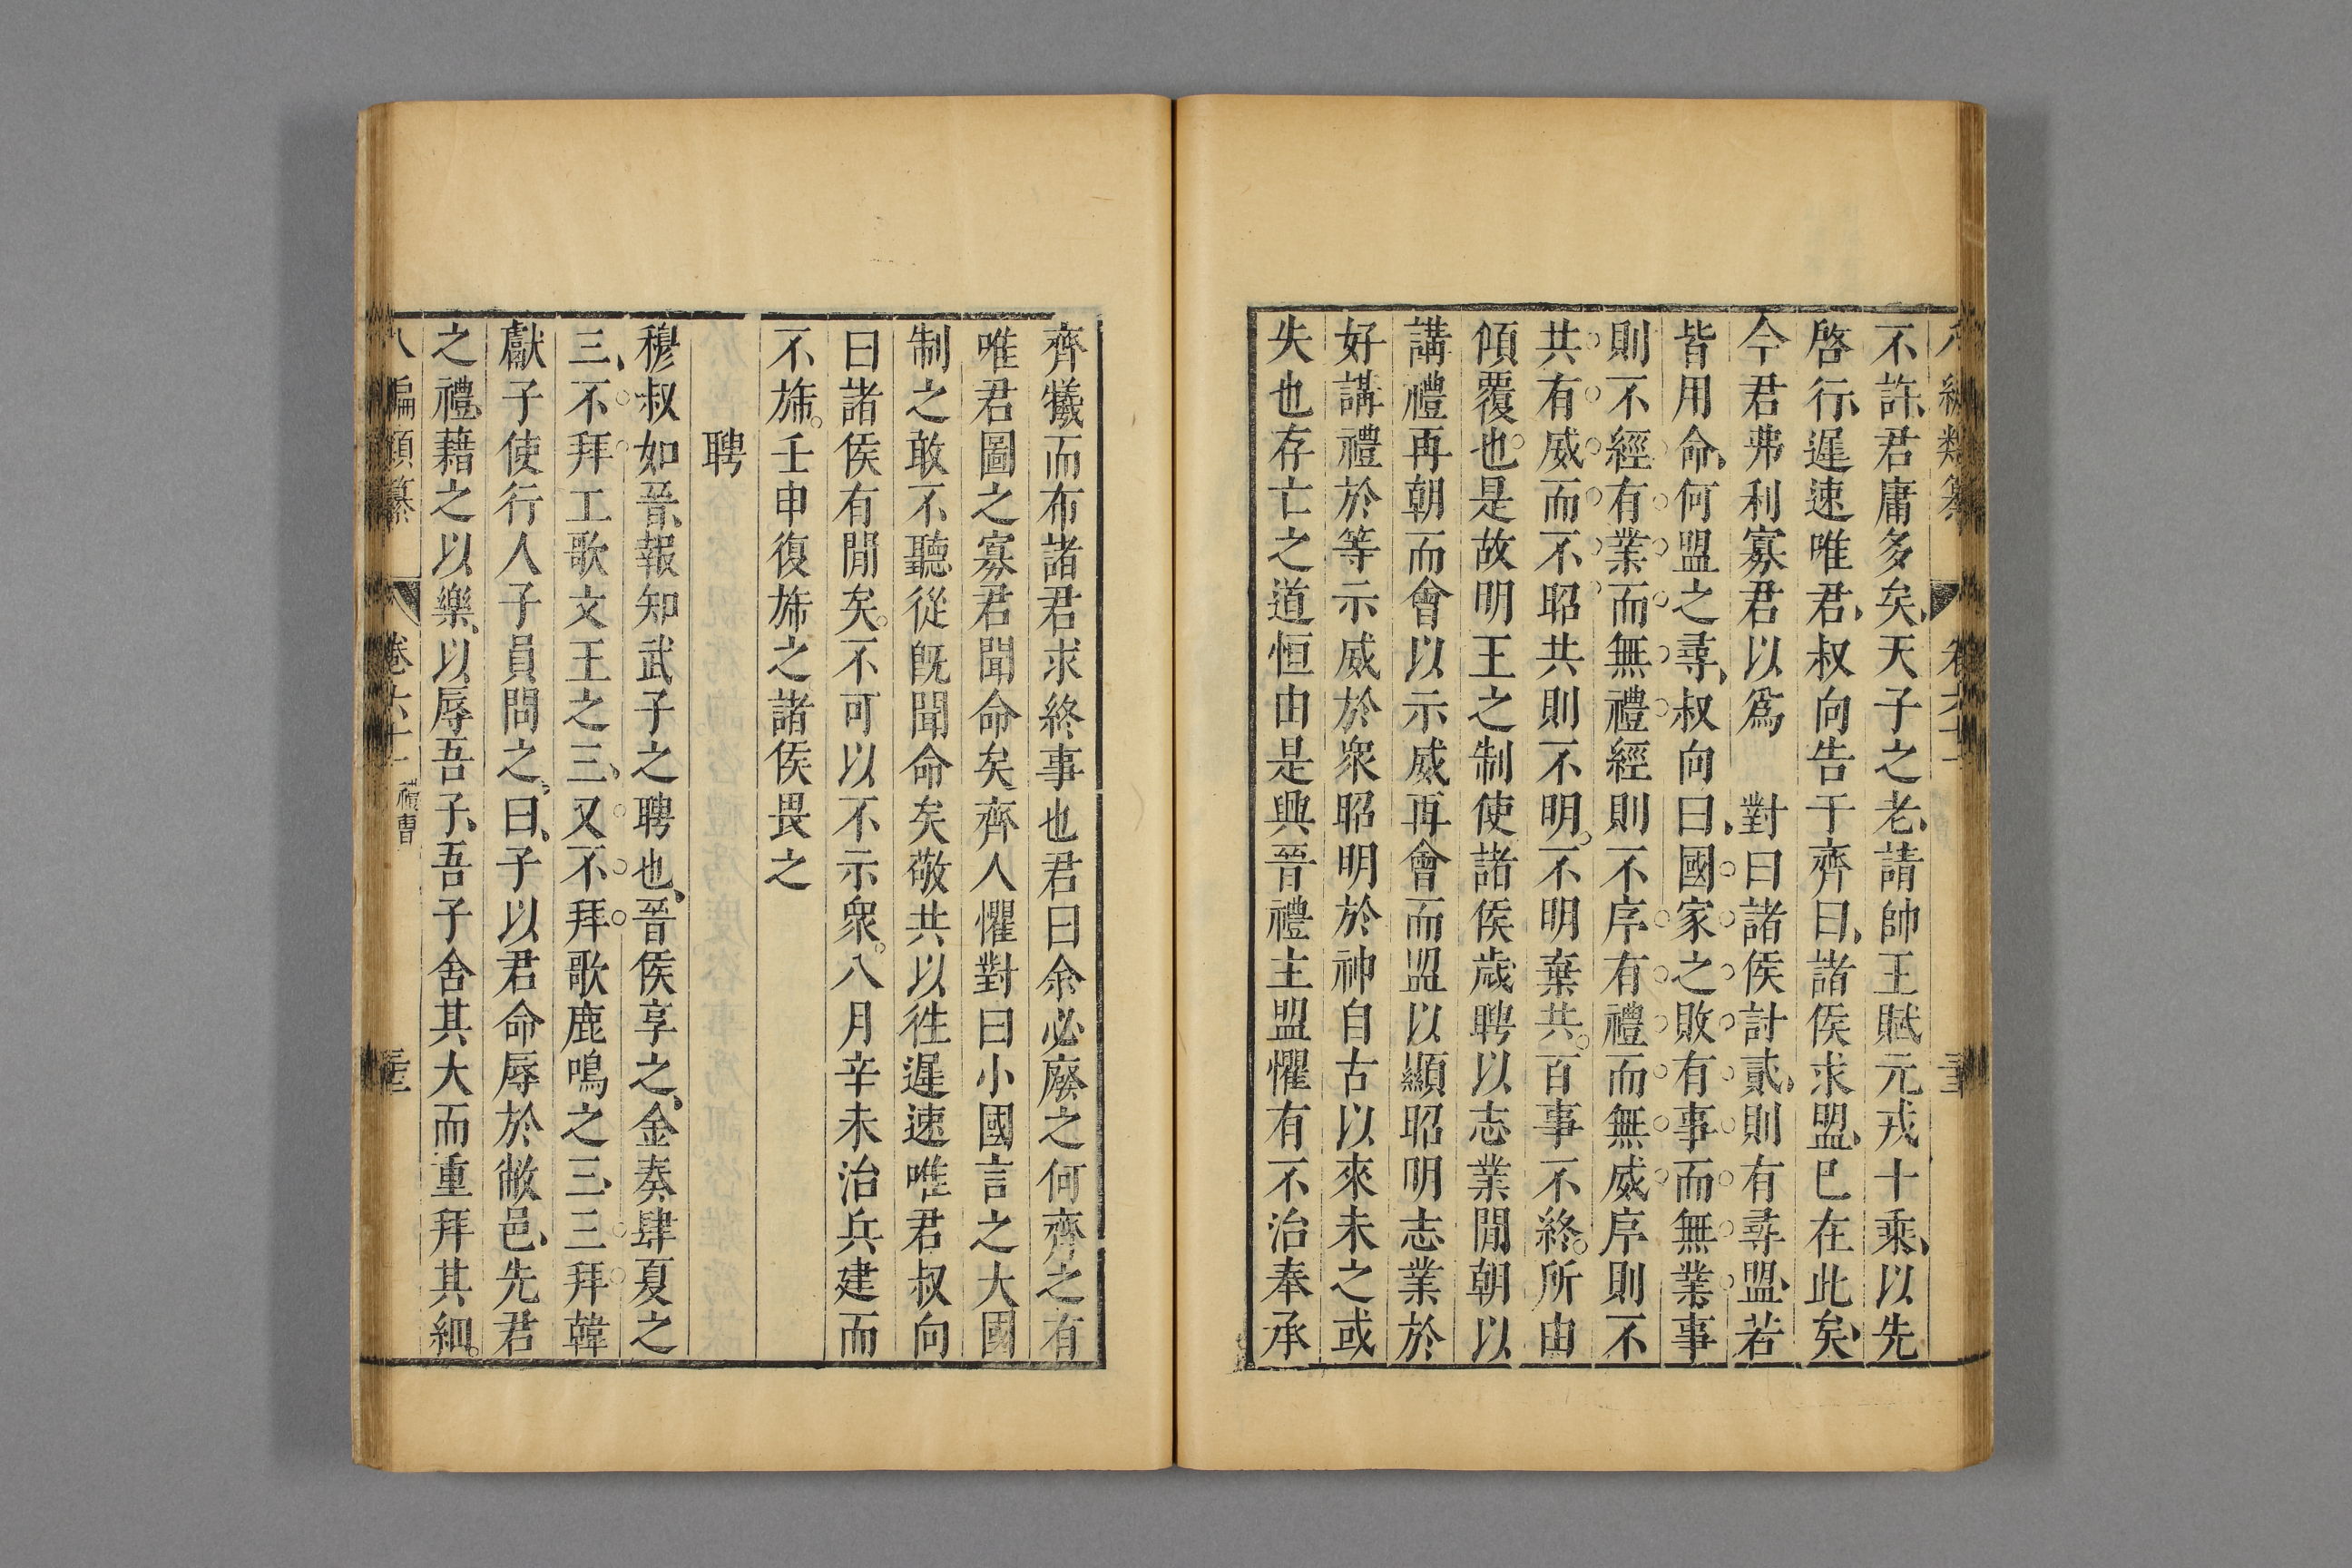 不許君庸多矣天子之老請帥王賦元戎十乘以先
啓行遲速唯君叔向告于齊曰諸侯求盟已在此矣
今君弗利寡君以爲 對曰諸侯討貳則有尋盟若
皆用命何盟之尋叔向曰國家之敗有事而無業事
則不經有業而無禮經則不序有禮而無威序則不
共有威而不昭共則不明不明棄共百事不終所由
傾覆也是故明王之制使諸侯歲聘以志業閒朝以
講禮再朝而會以示威再會而盟以顯昭明志業於
好講禮於等示威於衆昭明於神自古以來未之或
失也存亡之道恒由是興晉禮主盟懼有不治奉承
齊犧而布諸君求終事也君曰余必廢之何齊之有
唯君圖之寡君聞命矣齊人懼對曰小國言之大國
制之敢不聽從既聞命矣敬共以徃遲速唯君叔向
曰諸侯有閒矣不可以不示衆八月辛未治兵建而
不旆壬申復旆之諸侯畏之
聘
穆叔如晉報知武子之聘也晉侯享之金奏肆夏之
三不拜工歌文王之三又不拜歌鹿鳴之三三拜韓
獻子使行人子員問之曰子以君命辱於敝邑先君
之禮藉之以樂以辱吾子吾子舍其大而重拜其細
八編類纂 卷六十 禮曹